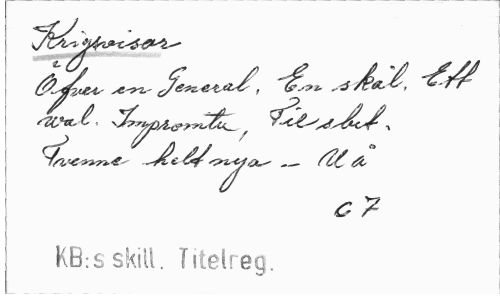 Krigsvisor
Öfver en General. En skål. Ett
wal. Impromtu, Till slut.
Tvenne helt nya — U å
67
KB:s skill. Titelreg.